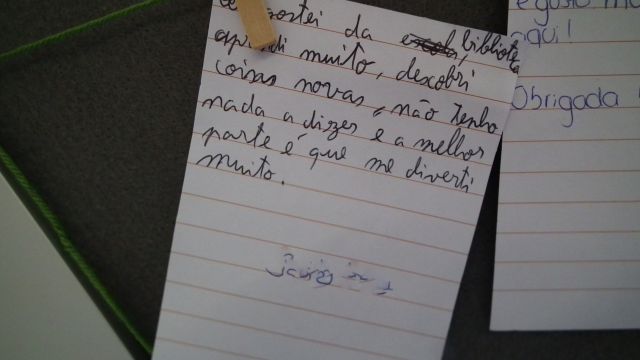 da escola, biblioteca
aprendi muito, descobri
coisas novas, não tenho
nada a dizer e a melhor
parte é que me diverti
muito.
gosto
aqui!
Obrigada